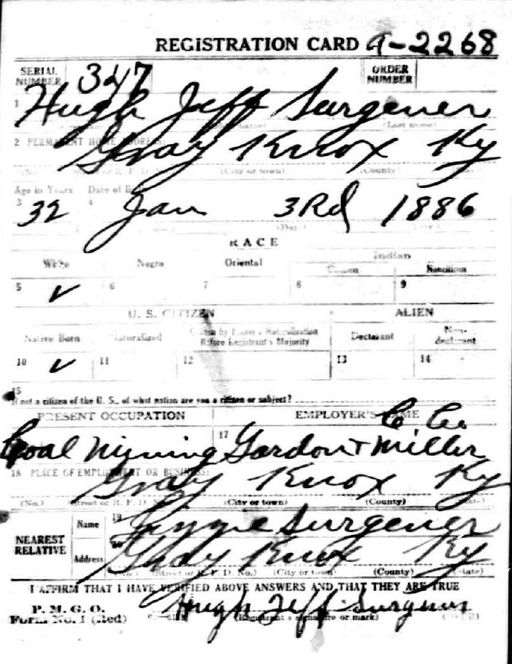 REGISTRATION CARD A-2268
SERIAL NUMBER 347 ORDER NUMBER
1 Hugh Jeff Surgener
2 PERMANENT HOME ADDRESS:
Gray Knox Ky
(City or town) (County
Age in Years Date of
3 32 4 Jan 3Rd 1886
RACE
White Negro Oriental Indian
Citizen Noncitizen
5 ✓ 6 7 8 9
U. S. CITIZEN ALIEN
Native Born Naturalized Citizen by Father's Naturalization Before Registrant's Majority Declarant Non-declarant
10 ✓ 11 12 13 14
15
If not a citizen of the U. S., of what nation are you a citizen or subject?
PRESENT OCCUPATION EMPLOYER'S NAME
Coal Mining 17 Gordon + Miller C. Co.
18 PLACE OF EMPLOYMENT OR BUSINESS:
Gray Knox Ky
(No.) (Street or R. F. D. No.) (City or town) (County)
NEAREST RELATIVE
Name 19 Surgener
Address 20 Gray Knox Ky
(Street or R. F. D. No.) (City or town) (County) (State)
I AFFIRM THAT I HAVE VERIFIED ABOVE ANSWERS AND THAT THEY ARE TRUE
P. M. G. O.
Form No. 1 (Red) Hugh Jeff Surgener
(Registrant's signature or mark)